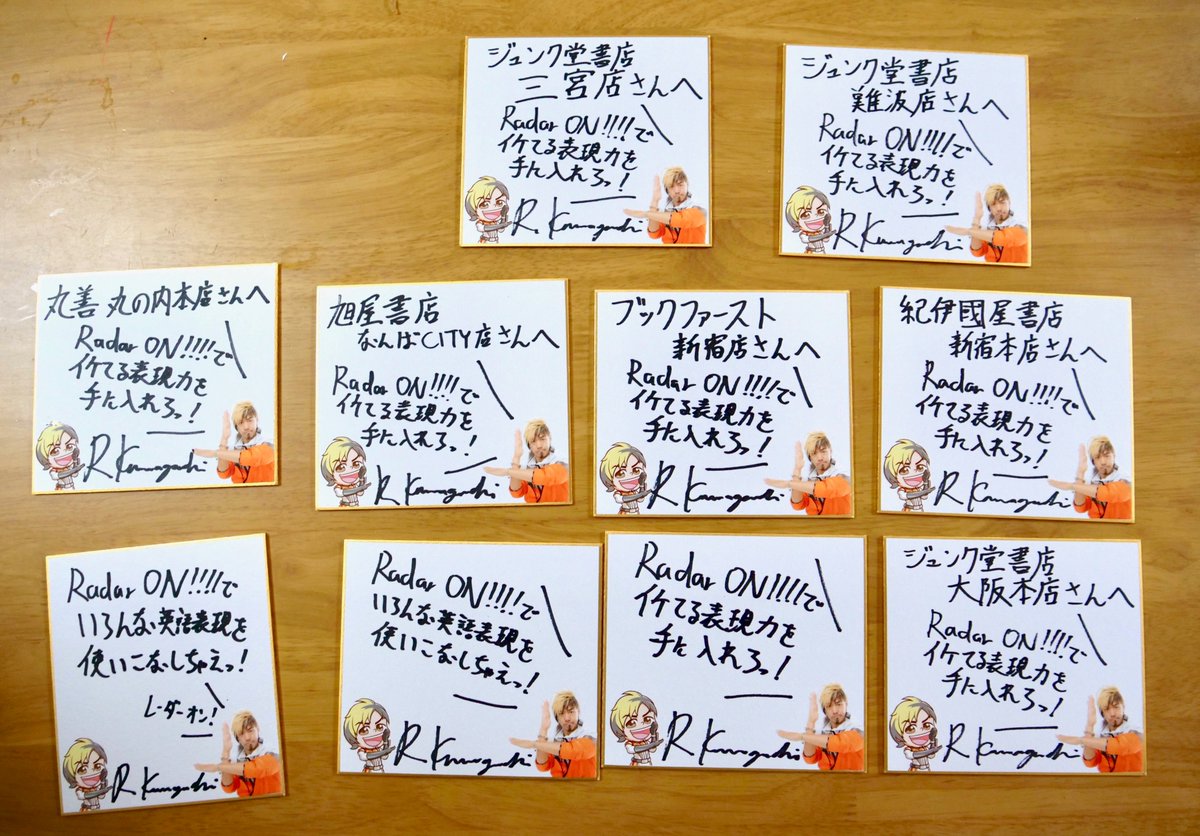 ジュンク堂書店
三宮店さんへ
Radar ON!!!!で
イケてる表現力を
手に入れろっ!
R Kawaguchi
ジュンク堂書店
難波店さんへ
Radar ON!!!!で
イケてる表現力を
手に入れろっ!
R Kawaguchi
丸善 丸の内本店さんへ
Radar ON!!!!で
イケてる表現力を
手に入れろっ!
R Kawaguchi
旭屋書店
なんばCITY店さんへ
Radar ON!!!!で
イケてる表現力を
手に入れろっ!
R Kawaguchi
ブックファースト
新宿店さんへ
Radar ON!!!!で
イケてる表現力を
手に入れろっ!
R Kawaguchi
紀伊國屋書店
新宿本店さんへ
Radar ON!!!!で
イケてる表現力を
手に入れろっ!
R Kawaguchi
Radar ON!!!!で
いろんな英語表現を
使いこなしちゃえっ!
レーダーオン!
R Kawaguchi
Radar ON!!!!で
いろんな英語表現を
使いこなしちゃえっ!
R Kawaguchi
Radar ON!!!!で
イケてる表現力を
手に入れろっ!
R Kawaguchi
ジュンク堂書店
大阪本店さんへ
Radar ON!!!!で
イケてる表現力を
手に入れろっ!
R Kawaguchi